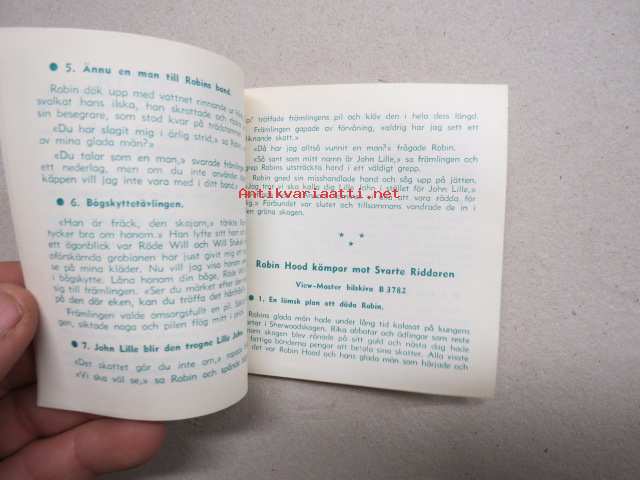 ● 5. Ännu en man till Robins band.
Robin dök upp med vattnet rinnande ur
svalkat hans ilska, han skrattade och
sin besegrare, som stod kvar på
«Du har slagit mig i ärlig strid,» sa
av mina glada män?»
«Du talar som en man,» svarade
ett nederlag, men om du inte
käppen vill jag inte vara med i ditt
● 6. Bågskyttetävlingen.
«Han är fräck, den skojarn,»
tycker bra om honom.» Han lyfte sitt
ett ögonblick var Röde Will och Will
oförskämda grobianen har just givit mig
se på mina kläder. Nu vill jag visa honom
i bågskytte. Låna honom din båge, Röde
sig till främlingen. «Ser du märket efter
på den där eken, kan du träffa det
Främlingen valde omsorgsfullt en pil
gen, siktade noga och pilen flög mitt i
● 7. John Lille blir den trogne Lille John.
«Det skottet gör du inte om,»
«Vi ska väl se,» sa Robin och
träffade främlingens pil och klöv den i hela dess längd.
Främlingen gapade av förvåning, «aldrig har jag sett ett
liknande skott.»
«Då har jag alltså vunnit en man?» frågade Robin.
«Så sant som mitt namn är John Lille,» sa främlingen och
grep Robins utsträckta hand i ett väldigt grepp.
Robin gned sin misshandlade hand och såg upp på jätten.
jag tror vi ska kalla dig Lille John i stället för John Lille,»
att vara rädda för
Förbundet var slutet och tillsammans vandrade de in i
den gröna skogen.
Antikvariaatti.net
* * *
Robin Hood kämpar mot Svarte Riddaren
View-Master bilskiva B 3782
● 1. En lömsk plan att döda Robin.
Robins glada män hade under lång tid kalasat på kungens
i Sherwoodskogen. Rika abbotar och ädlingar som reste
skogen blev rånade på sitt guld och nästa dag hade
fattiga bönderna pengar att betala sina skatter. Alla visste
det var Robin Hood och hans glada män som härjade och